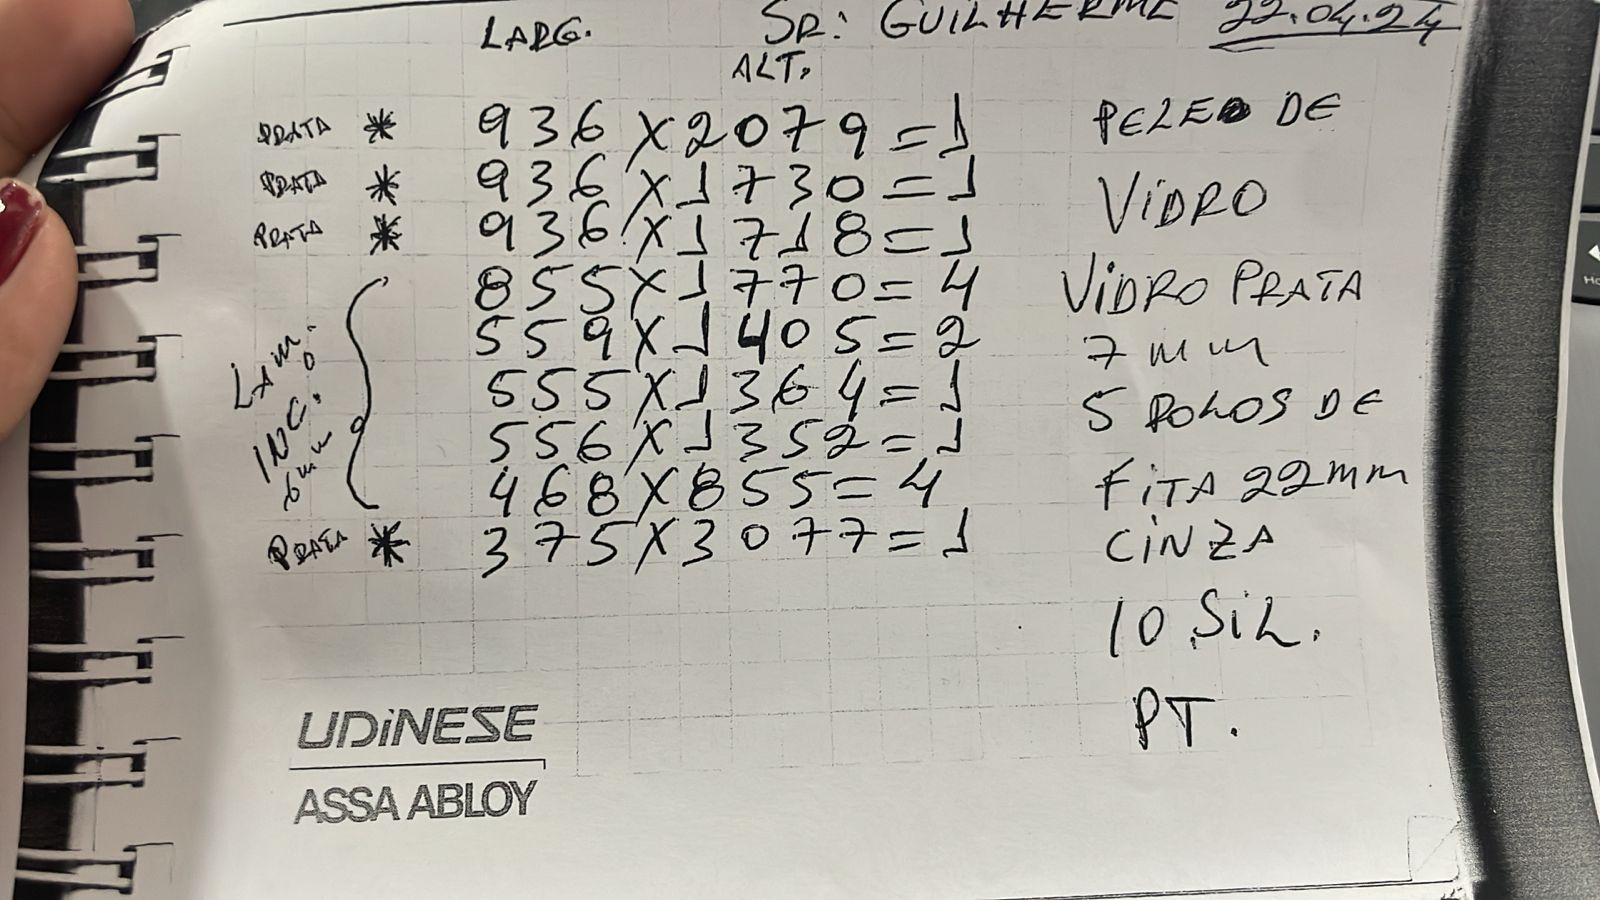 LARG. SR: GUILHERME 22.04.24
ALT.
PRATA * 936 X 2079 = 1
PRATA * 936 X 1730 = 1
PRATA * 936 X 1718 = 1
855 X 1770 = 4
559 X 1405 = 2
555 X 1364 = 1
556 X 1352 = 1
468 X 855 = 4
PRATA * 375 X 3077 = 1
LAM.
INC.
6mm
DE
VIDRO
VIDRO PRATA
7 mm
5 ROLOS DE
FITA 22MM
CINZA
10 SIL.
PT.
UDINESE
ASSA ABLOY